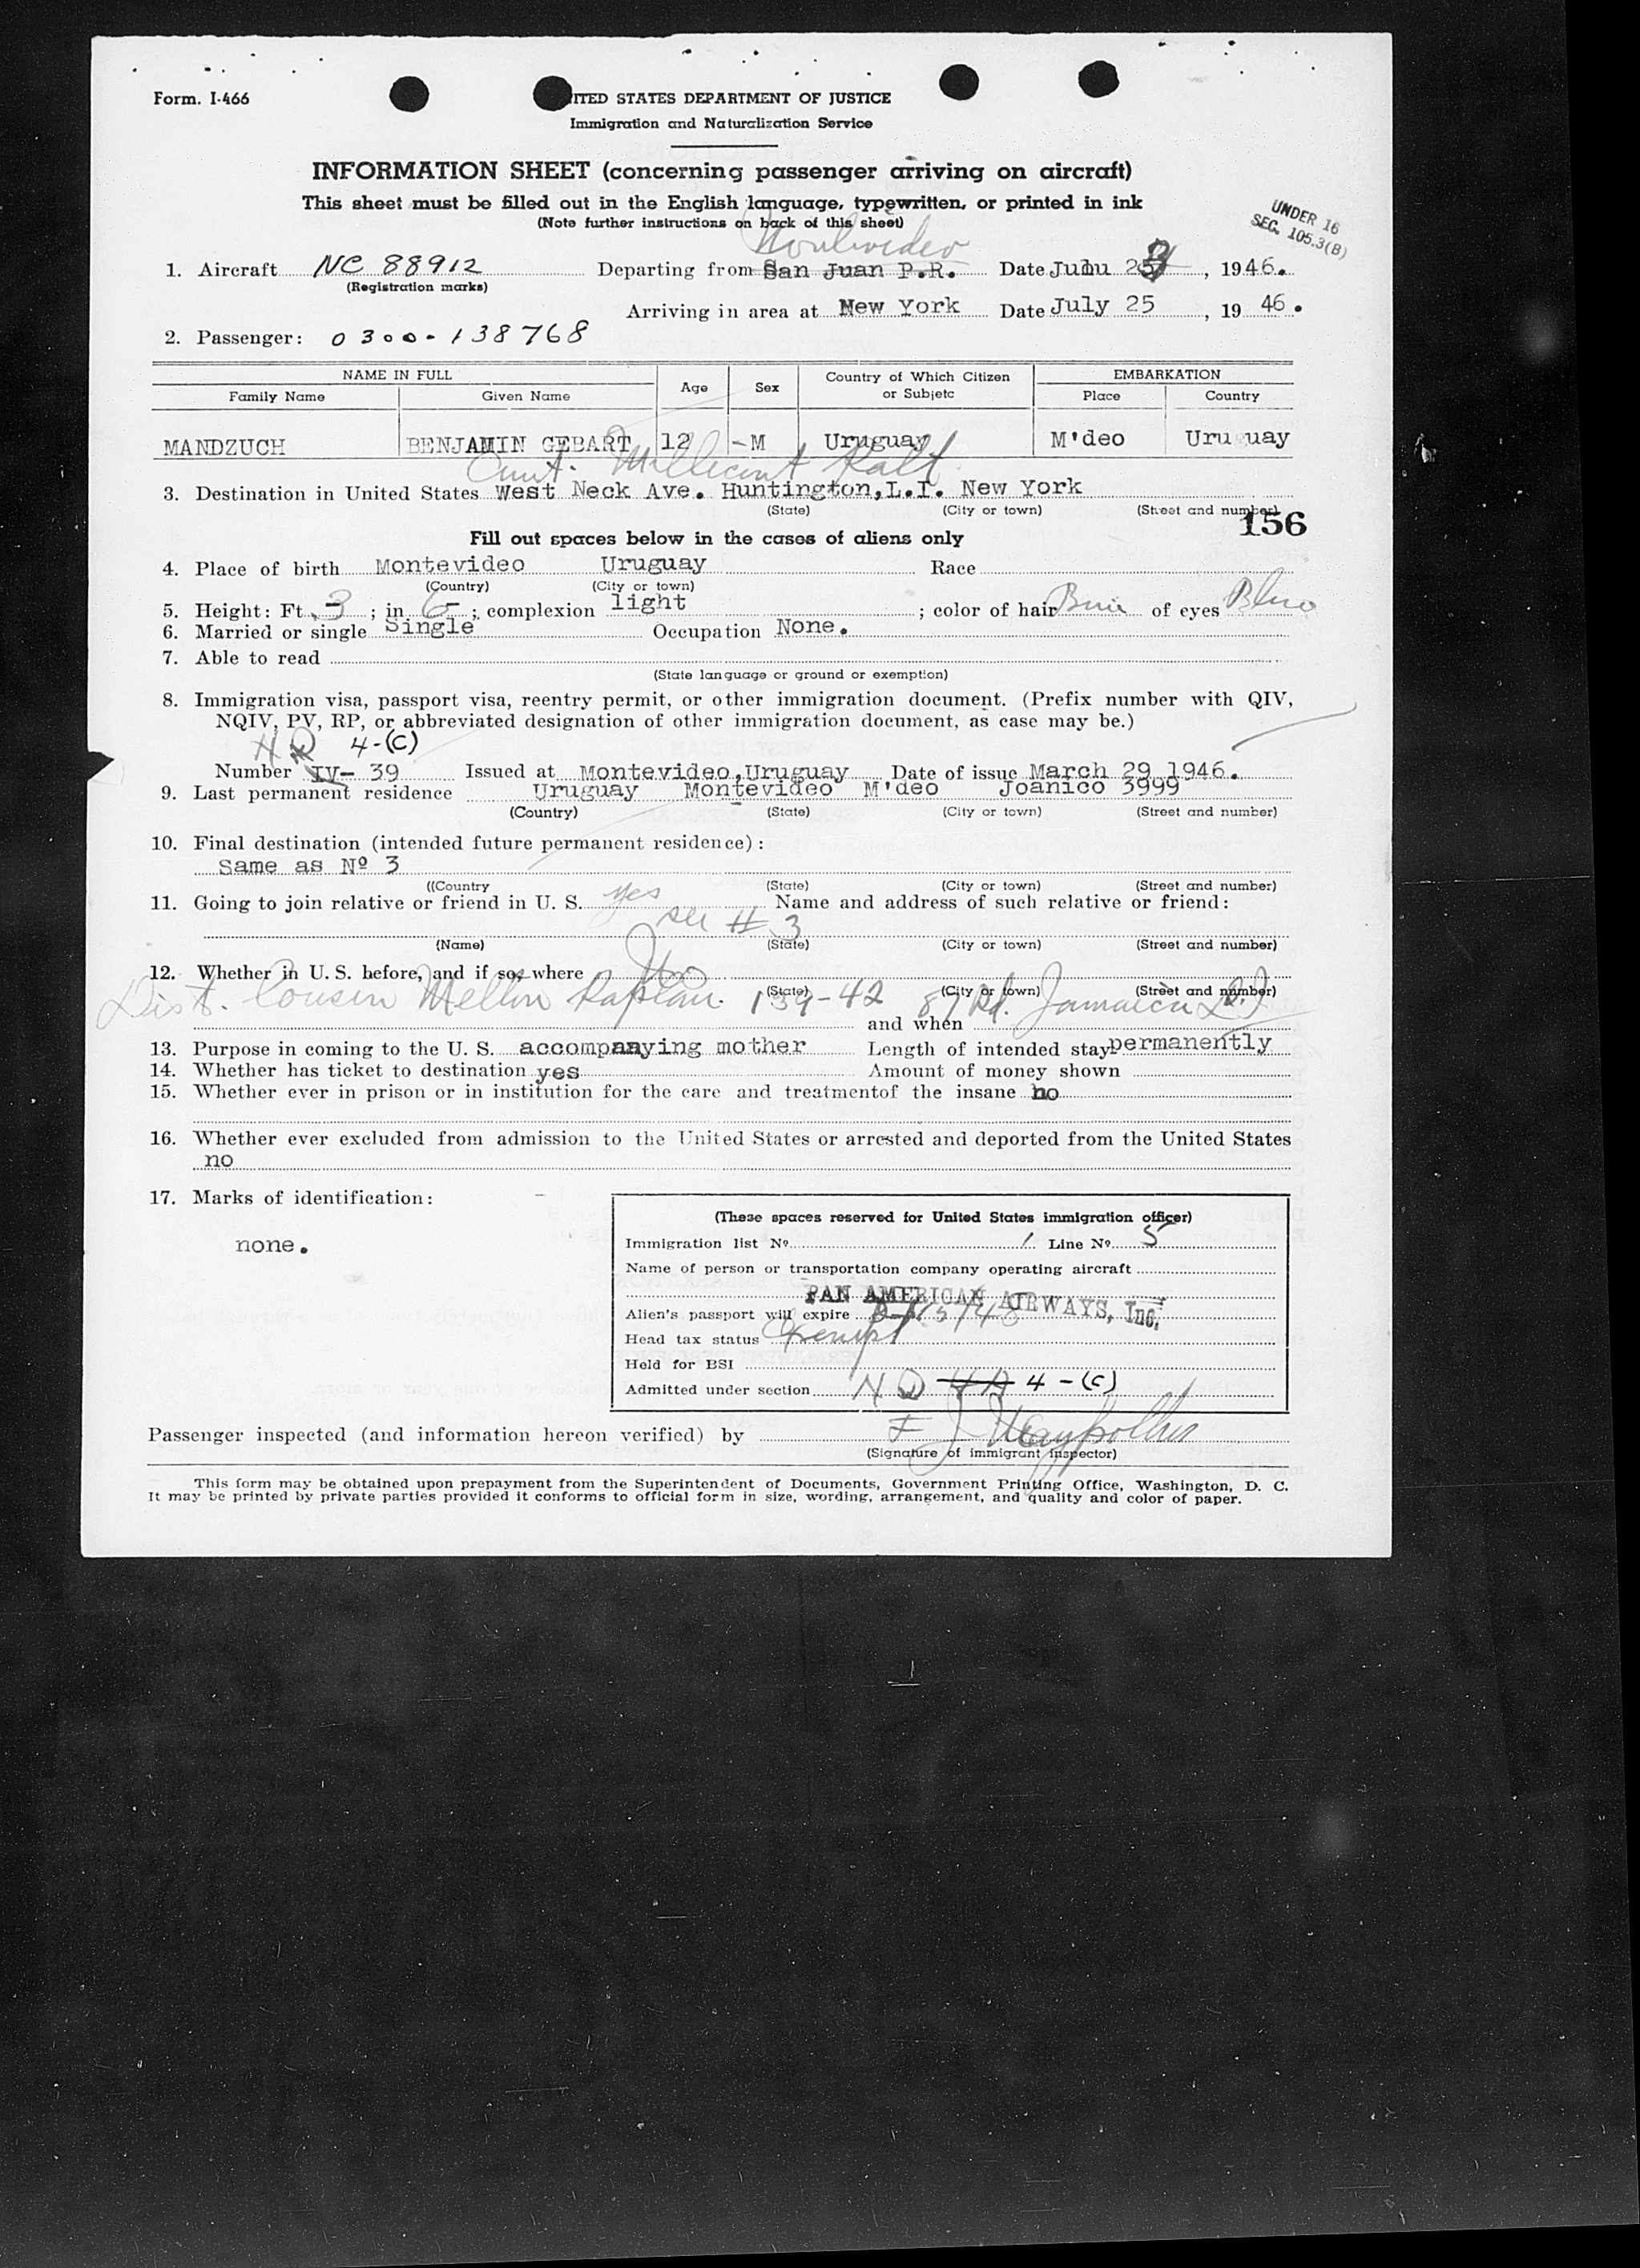 Form. I-466
ITED STATES DEPARTMENT OF JUSTICE
Immigration and Naturalization Service
INFORMATION SHEET (concerning passenger arriving on aircraft)
This sheet must be filled out in the English language, typewritten, or printed in ink
(Note further instructions on back of this sheet)
UNDER 16
SEC. 105.3(B)
Montevideo
1. Aircraft NC 88912 Departing from San Juan P.R. Date , 1946.
(Registration marks)
Arriving in area at New York Date July 25 , 19 46.
2. Passenger: 0300-138768
NAME IN FULL Age Sex Country of Which Citizen or Subjetc EMBARKATION
Family Name Given Name Place Country
MANDZUCH BENJAMIN GEBART 12 -M Uruguay M'deo Uru uay
Aunt. Millicent Kalt
3. Destination in United States West Neck Ave. Huntington,L.I. New York
(State) (City or town) (Street and number)
156
Fill out spaces below in the cases of aliens only
4. Place of birth Montevideo Uruguay Race
(Country) (City or town)
5. Height: Ft. 3 ; in 6 ; complexion light ; color of hair of eyes Blue
6. Married or single Single Occupation None.
7. Able to read
(State language or ground or exemption)
8. Immigration visa, passport visa, reentry permit, or other immigration document. (Prefix number with QIV,
NQIV, PV, RP, or abbreviated designation of other immigration document, as case may be.)
NQ 4-(C)
Number IV- 39 Issued at Montevideo,Uruguay Date of issue March 29 1946.
9. Last permanent residence Uruguay Montevideo M'deo Joanico 3999
(Country) (State) (City or town) (Street and number)
10. Final destination (intended future permanent residence):
Same as Nº 3
((Country (State) (City or town) (Street and number)
11. Going to join relative or friend in U. S. yes Name and address of such relative or friend:
see # 3
(Name) (State) (City or town) (Street and number)
12. Whether in U. S. before, and if so, where No
(State) (City or town) (Street and number)
Dist. Cousin Kaplan. 139-42 87 Rd. Jamaica L.I.
and when
13. Purpose in coming to the U. S. accompanying mother Length of intended stay permanently
14. Whether has ticket to destination yes Amount of money shown
15. Whether ever in prison or in institution for the care and treatmentof the insane no
16. Whether ever excluded from admission to the United States or arrested and deported from the United States
no
17. Marks of identification:
none.
(These spaces reserved for United States immigration officer)
Immigration list Nº 1 Line Nº 5
Name of person or transportation company operating aircraft
PAN AMERICAN AIRWAYS, Inc.
Alien's passport will expire
Head tax status Exempt
Held for BSI
Admitted under section NQ 4-(C)
Passenger inspected (and information hereon verified) by F J
(Signature of immigrant inspector)
This form may be obtained upon prepayment from the Superintendent of Documents, Government Printing Office, Washington, D. C.
It may be printed by private parties provided it conforms to official form in size, wording, arrangement, and quality and color of paper.